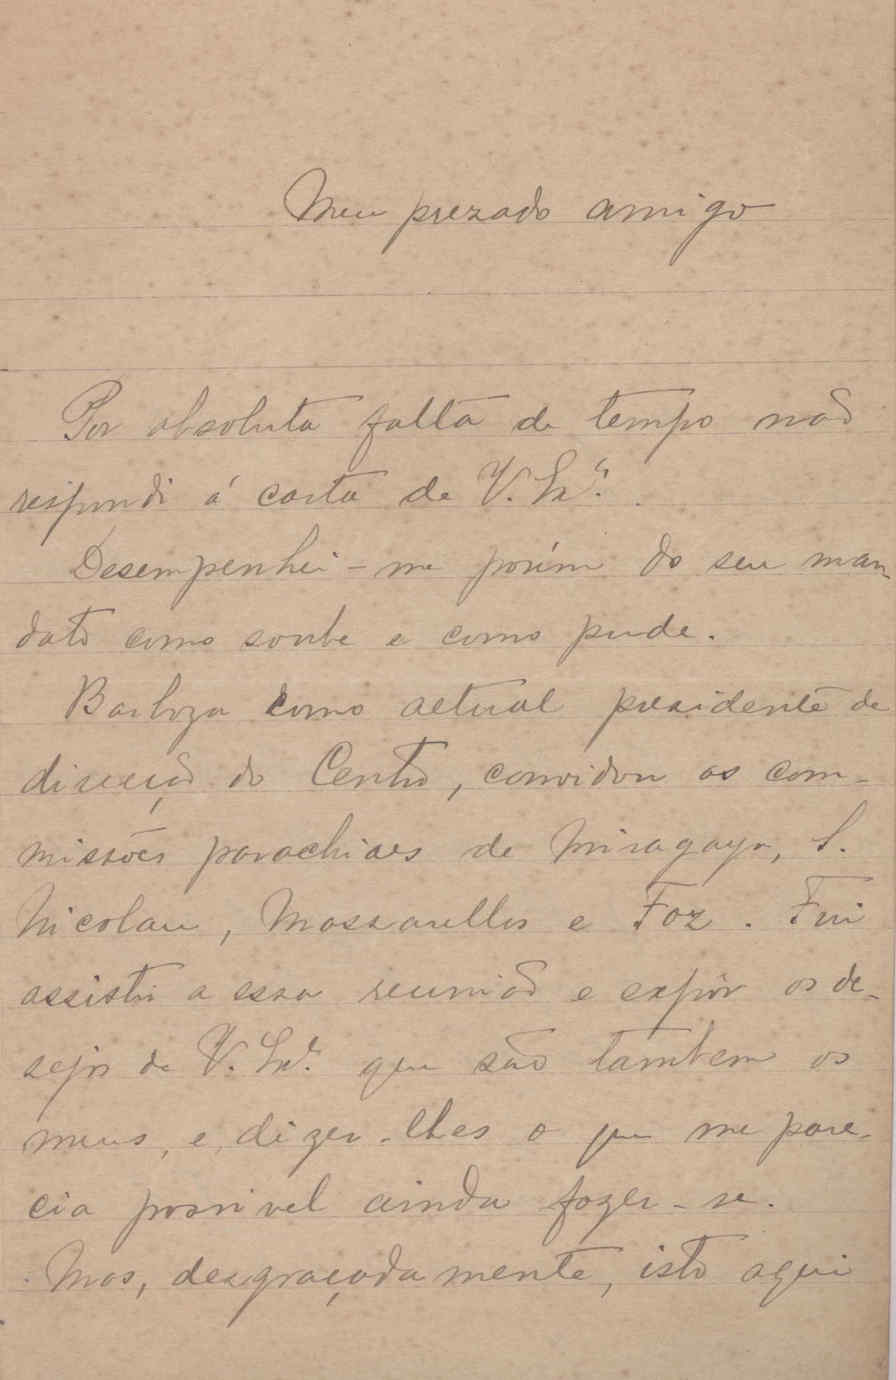 Meu prezado amigo
Por absoluta falta de tempo não
respondi á carta de V. Exª.
Desempenhei-me porém do seu man-
dato como soube e como pude.
Barboza como actual presidente da
direcção do Centro, convidou as com-
missões parochiaes de Miragaya, S.
Nicolau, Massarellos e Foz. Fui
assistir a essa reunião e expôr os de-
sejos de V. Exª. que são tambem os
meus, e, dizer-lhes o que me pare-
cia possivel ainda fazer-se.
Mas, desgraçadamente, isto aqui